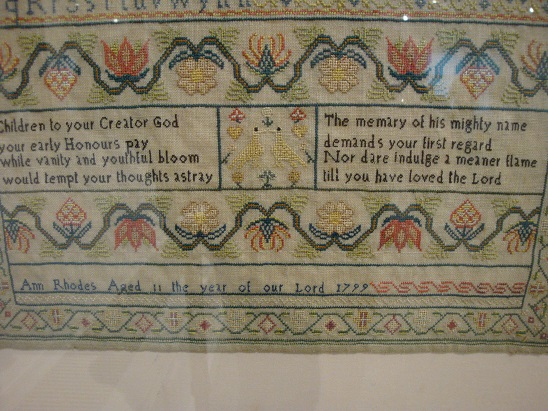 Children to your Creator God
your early Honours pay
while vanity and youthful bloom
would tempt your thoughts astray
The memary of his mighty name
demands your first regard
Nor dare indulge a meaner flame
till you have loved the Lord
Ann Rhodes Aged 11 the year of our Lord 1799